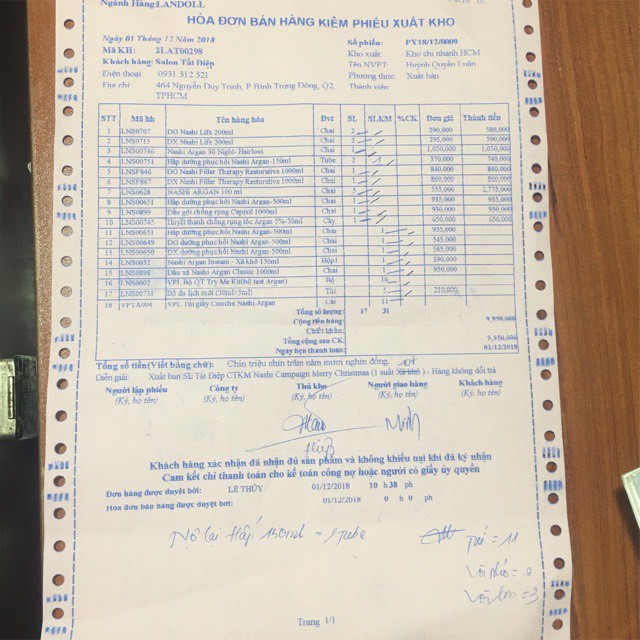 Ngành Hàng:LANDOLL
HÓA ĐƠN BÁN HÀNG KIÊM PHIẾU XUẤT KHO
Ngày 01 Tháng 12 Năm 2018
Mã KH: 2LAT00298
Khách hàng: Salon Tất Điệp
Điện thoại: 0931 312 521
Địa chỉ: 464 Nguyễn Duy Trinh, P Bình Trưng Đông, Q2, TPHCM
Số phiếu: PX18/12/0009
Kho xuất: Kho chi nhánh HCM
Tên NVPT: Huỳnh Quyền Luân
Phương thức: Xuất bán
Thành viên:
STT Mã hh Tên hàng hóa Đvt SL SLKM %CK Đơn giá Thành tiền
1 LNS0707 DG Nashi Life 200ml Chai 2 290,000 580,000
2 LNS0715 DX Nashi Life 200ml Chai 2 295,000 590,000
3 LNS00746 Nashi Argan 30 Night- Hairloss Chai 1 1,050,000 1,050,000
4 LNS00751 Hấp dưỡng phục hồi Nashi Argan-150ml Tube 2 370,000 740,000
5 LNSF846 DG Nashi Filler Therapy Restorative 1000ml Chai 1 840,000 840,000
6 LNSF867 DX Nashi Filler Therapy Restorative 1000ml Chai 1 860,000 860,000
7 LNS0628 NASHI ARGAN 100 ml Chai 5 555,000 2,775,000
8 LNS00651 Hấp dưỡng phục hồi Nashi Argan-500ml Chai 1 935,000 935,000
9 LNS0899 Dầu gội chống rụng Capixil 1000ml Chai 1 930,000 930,000
10 LNS00745 Huyết thanh chống rụng tóc Argan 5%-30ml Cây 1 650,000 650,000
11 LNS00651 Hấp dưỡng phục hồi Nashi Argan-500ml Chai 1 935,000
12 LNS00649 DG dưỡng phục hồi Nashi Argan-500ml Chai 1 545,000
13 LNS00650 DX dưỡng phục hồi Nashi Argan-500ml Chai 1 565,000
14 LNS0652 Nashi Argan Instant - Xả khô 150ml Hộp1 1 390,000
15 LNS0898 Dầu xả Nashi Argan Classic 1000ml Chai 1 950,000
16 LNS0002 VPL Bộ QT Try Me Kit(bộ test Argan) Bộ 10
17 LNS00731 Bộ du lịch mới (30ml+5ml) Túi 5 210,000
18 VPTA004 VPL Túi giấy Couche Nashi Argan Cái 11
Tổng số lượng: 17 31
Cộng tiền hàng: 9,950,000
Chiết khấu:
Tổng cộng sau CK: 9,950,000
Ngày hẹn thanh toán: 01/12/2018
Tổng số tiền(Viết bằng chữ): Chín triệu chín trăm năm mươi nghìn đồng.
Diễn giải: Xuất bán SL Tất Điệp CTKM Nashi Campaign Merry Christmas (1 suất Xả khô) - Hàng không đổi trả
Người lập phiếu Công ty Thủ kho Người giao hàng Khách hàng
(Ký, họ tên) (Ký, họ tên) (Ký, họ tên) (Ký, họ tên) (Ký, họ tên)
Khách hàng xác nhận đã nhận đủ sản phẩm và không khiếu nại khi đã ký nhận
Cam kết chỉ thanh toán cho kế toán công nợ hoặc người có giấy ủy quyền
Đơn hàng được duyệt bởi: LÊ THỦY 01/12/2018 10 h 38 ph
Hóa đơn bán hàng được duyệt bởi: 01/12/2018 0 h 0 ph
Nợ lại Hấp 150ml - 1 tube
túi = 11
Trang 1/1